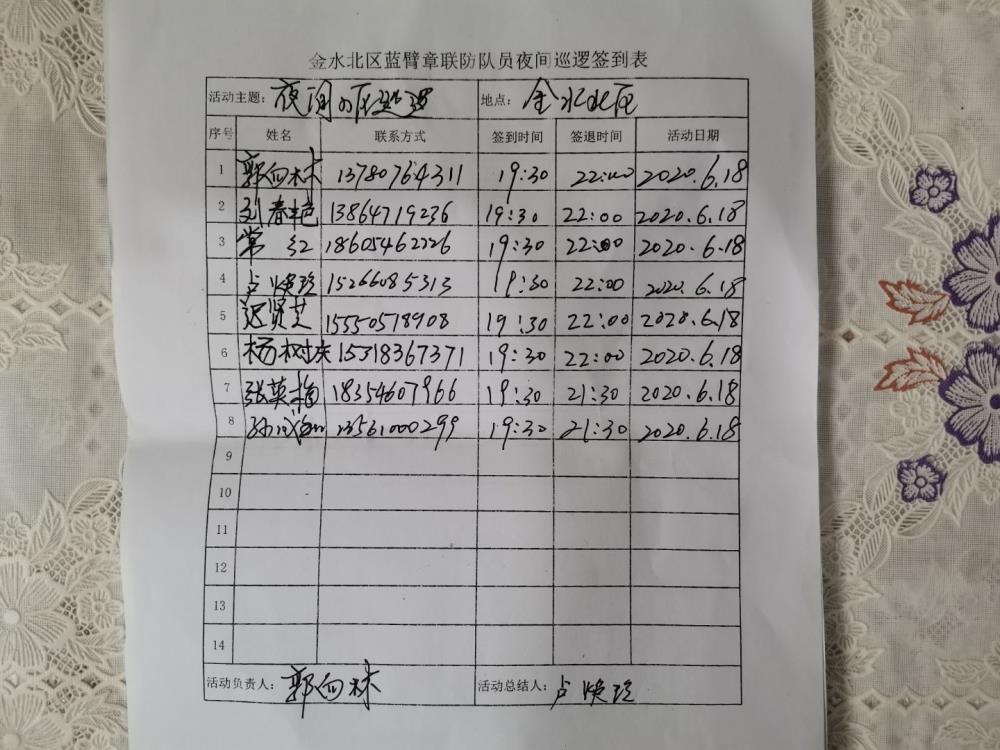 金水北区蓝臂章联防队员夜间巡逻签到表
活动主题： 夜间 巡逻 地点： 金水北区
序号 姓名 联系方式 签到时间 签退时间 活动日期
1 郭向林 13780764311 19:30 22:00 2020.6.18
2 刘春艳 13864719236 19:30 22:00 2020.6.18
3 常红 18605462226 19:30 22:00 2020.6.18
4 卢焕珍 15266085313 19:30 22:00 2020.6.18
5 迟贤芝 15550518908 19:30 22:00 2020.6.18
6 杨树 15318367371 19:30 22:00 2020.6.18
7 张英梅 18354607966 19:30 21:30 2020.6.18
8 孙 13561000299 19:30 21:30 2020.6.18
9
10
11
12
13
14
活动负责人： 郭向林 活动总结人： 卢焕珍